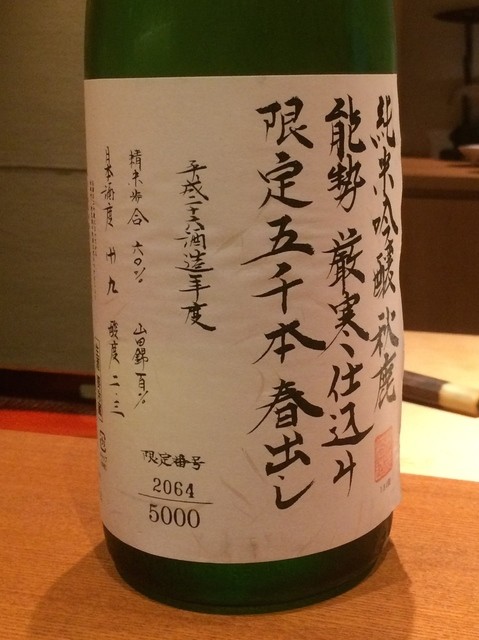 純米吟醸 秋鹿
能勢 厳寒仕込み
限定五千本春出し
平成二十六酒造年度
精米歩合 六〇%
山田錦 百%
日本酒度 十九
酸度 二.三
限定番号
2064
5000